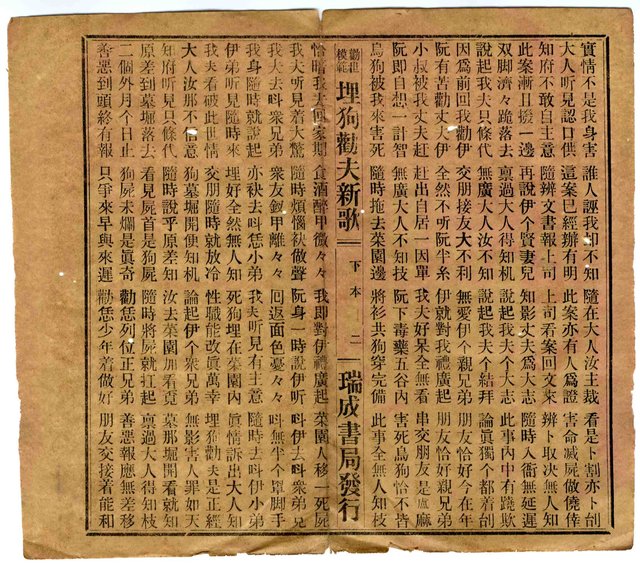 實情不是我身害 誰人誣我却不知 隨在大人汝主裁 看是卜割亦卜刣
大人听見認口供 這案已經辦有明 此案亦有人爲證 害命滅屍做僥倖
知府不敢自主意 隨辦文書報上司 上司看案回文來 辦卜取决無人知
此案漸且撥一邊 再說伊个賢妻兒 知影丈夫爲大志 隨時入衙無延遲
双脚濟々跪落去 稟過大人得知机 說起我夫个大志 此事內中有蹺欺
說起我夫只條代 無廣大人汝不知 說起我夫个結拜 論眞獨个都着刣
因爲前回我勸伊 交朋友接大不利 無愛伊个親兄弟 朋友恰好今在年
阮有苦勸丈夫伊 全然不听阮半糸 伊就對我禮廣起 朋友恰好親兄弟
小叔被我丈夫赶 赶出自居一因單 我夫好呆全無看 串交朋友是盧麻
阮即自想一計智 無廣大人不知枝 阮下毒藥五谷內 害死烏狗恰不皆
烏狗被我來害死 隨時拖去菜園邊 將衫共狗穿完備 此事全無人知枝
勸世模範 埋狗勸夫新歌 下本 二 瑞成書局發行
恰暗我夫回家期 食酒醉甲微々々 我即對伊禮廣起 菜園人移一死屍
我夫听見着大驚 隨時煩惱袂做聲 阮身一時說伊听 叫伊去叫衆兄
我夫去叫衆兄弟 衆友釵甲離々々 囘返面色憂々々 叫無半个罩脚手
我身隨時就說起 亦袂去叫恁小弟 我夫听見有主意 隨時去叫伊小弟
伊弟听見隨時來 埋好全然無人知 死狗埋在菜園內 眞情訴出大人知
我夫看破此世情 交朋隨時就放冷 性職能改眞萬幸 埋狗勸夫是正經
大人汝那不信意 墓堀開便知机 說起伊个衆兄弟 無影害人罪如天
知府听見只條代 隨時說乎原差知 汝去菜園加看覓 墓那堀開看就知
原差到墓堀落去 看見屍首是狗屍 隨時將屍就扛起 稟過大人得知枝
二個外月个日止 狗屍未爛是眞奇 勸恁列位正兄弟 善惡報應無差移
善惡到頭終有報 只爭來早與來遲 勸恁少年着做好 朋友交接着能和